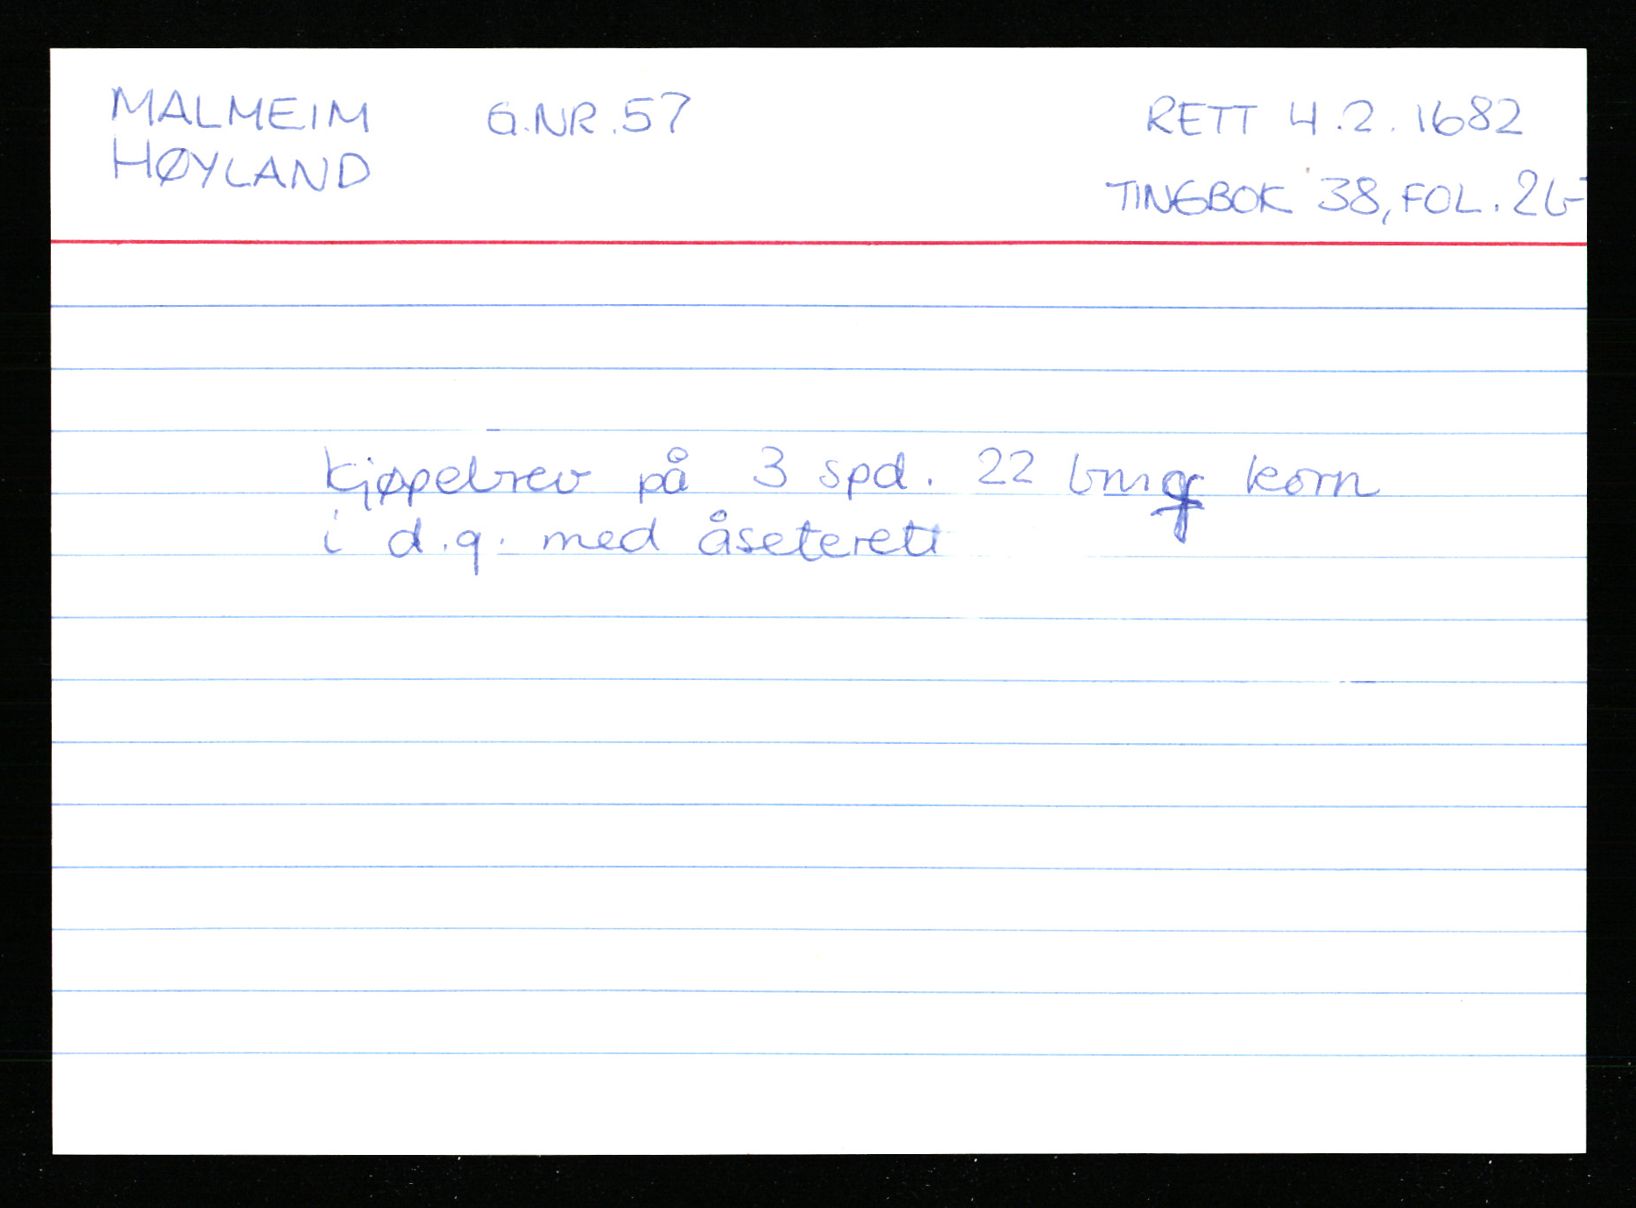 MALMEIM G.NR.57 RETT 4.2.1682
HØYLAND TINGBOK 38, FOL. 26
kjøpebrev på 3 spd. 22 bmg korn
i d.g. med åseterett